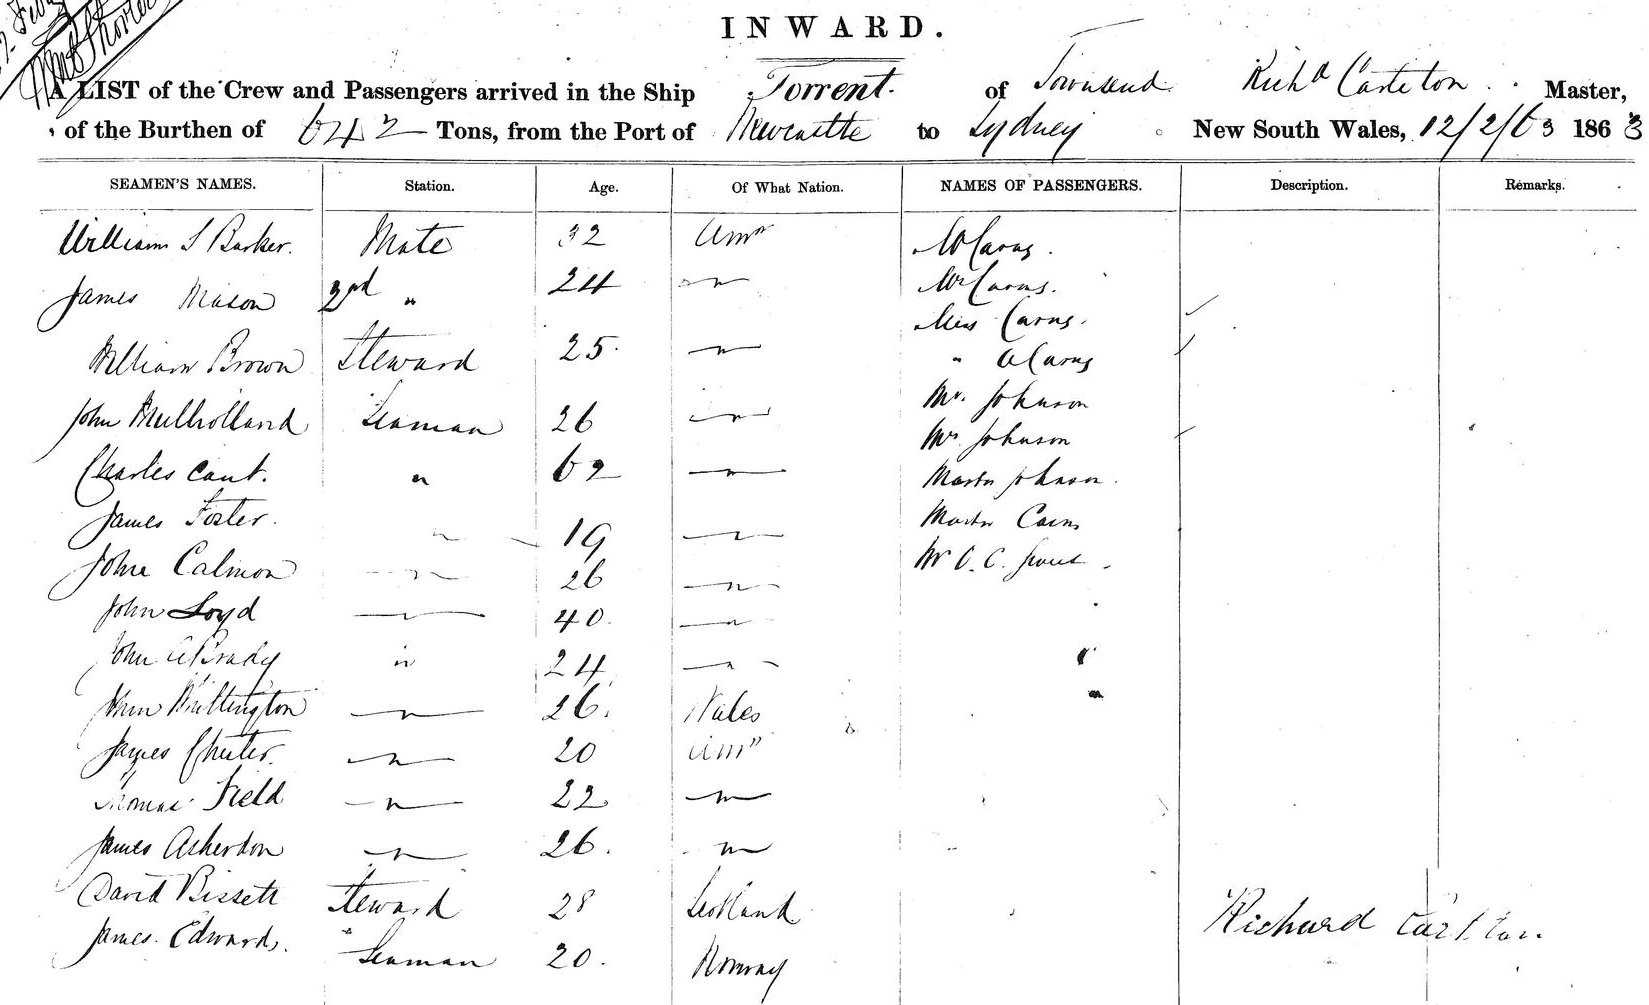 INWARD.
A LIST of the Crew and Passengers arrived in the Ship Torrent. of Townsend Richd Carleton Master,
of the Burthen of 642 Tons, from the Port of Newcastle to Sydney New South Wales, 12/2/63 1863
SEAMEN'S NAMES. Station. Age. Of What Nation. NAMES OF PASSENGERS. Description. Remarks.
William S Barker. Mate 32 Amn Mr Carns.
James Mason 2nd " 24 " Mrs Carns.
Miss Carns.
William Brown Steward 25 " " A Carns
Mr. Johnson
John Mulholland Seaman 26 " Mrs Johnson
Charles Cant. " 62 " Master Johnson.
James Foster. " 19 " Master Carns
John Calmon " 26 " Mr C. C.
John Loyd 40 "
John A Brady " 24 "
John Whittington " 26. Wales
James Chuter. " 20 Amn
Thomas Field " 22 "
James Asherton " 26. "
David Bissett Steward 28 Scotland
Richard Carlton
James Edwards. Seaman 20. Norway